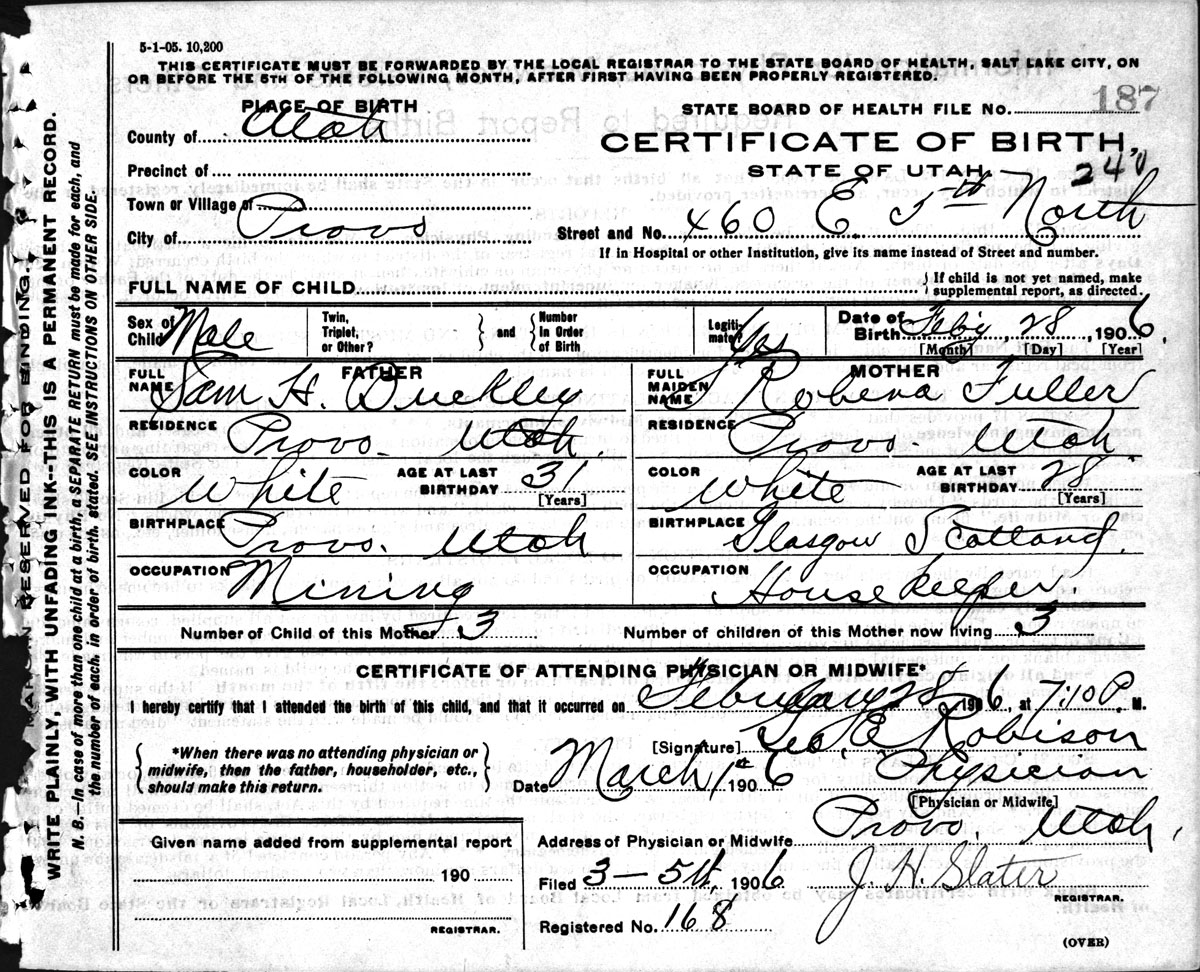 5-1-05. 10,200
THIS CERTIFICATE MUST BE FORWARDED BY THE LOCAL REGISTRAR TO THE STATE BOARD OF HEALTH, SALT LAKE CITY, ON
OR BEFORE THE 5TH OF THE FOLLOWING MONTH, AFTER FIRST HAVING BEEN PROPERLY REGISTERED.
WRITE PLAINLY, WITH UNFADING INK--THIS IS A PERMANENT RECORD.
N. B.—In case of more than one child at a birth, a SEPARATE RETURN must be made for each, and
the number of each, in order of birth, stated. SEE INSTRUCTIONS ON OTHER SIDE.
MARGIN RESERVED FOR BINDING.
PLACE OF BIRTH
County of Utah
Precinct of
Town or Village of
City of Provo
STATE BOARD OF HEALTH FILE NO. 187
CERTIFICATE OF BIRTH,
STATE OF UTAH
240
Street and No. 460 E 5th North
If in Hospital or other Institution, give its name instead of Street and number.
FULL NAME OF CHILD
If child is not yet named, make
supplemental report, as directed.
Sex of Child Male
Twin, Triplet, or Other?
and
Number in Order of Birth
Legiti-mate? Yes
Date of Birth Feby 28 1906
[Month] [Day] [Year]
FATHER
FULL NAME Sam H. Buckley
RESIDENCE Provo. Utah.
COLOR White AGE AT LAST BIRTHDAY 31 [Years]
BIRTHPLACE Provo. Utah
OCCUPATION Mining
MOTHER
FULL MAIDEN NAME Robena Fuller
RESIDENCE Provo Utah
COLOR White AGE AT LAST BIRTHDAY 28 [Years]
BIRTHPLACE Glasgow Scotland.
OCCUPATION Housekeeper.
Number of Child of this Mother 3 Number of children of this Mother now living 3
CERTIFICATE OF ATTENDING PHYSICIAN OR MIDWIFE*
I hereby certify that I attended the birth of this child, and that it occurred on February 28 1906, at 7:10 P. M.
*When there was no attending physician or
midwife, then the father, householder, etc.,
should make this return.
[Signature] Geo. E Robison
Date March 1st 1906 Physician
[Physician or Midwife]
Address of Physician or Midwife Provo, Utah,
Given name added from supplemental report
190
REGISTRAR.
Filed 3-5th, 1906 J. H. Slater
REGISTRAR.
Registered No. 168
(OVER)